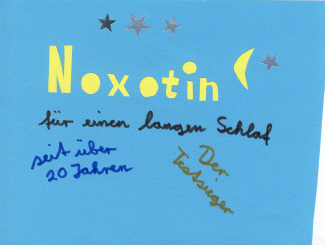 Noxotin
für einen langen Schlaf
seit über
20 Jahren
Der
Testsieger